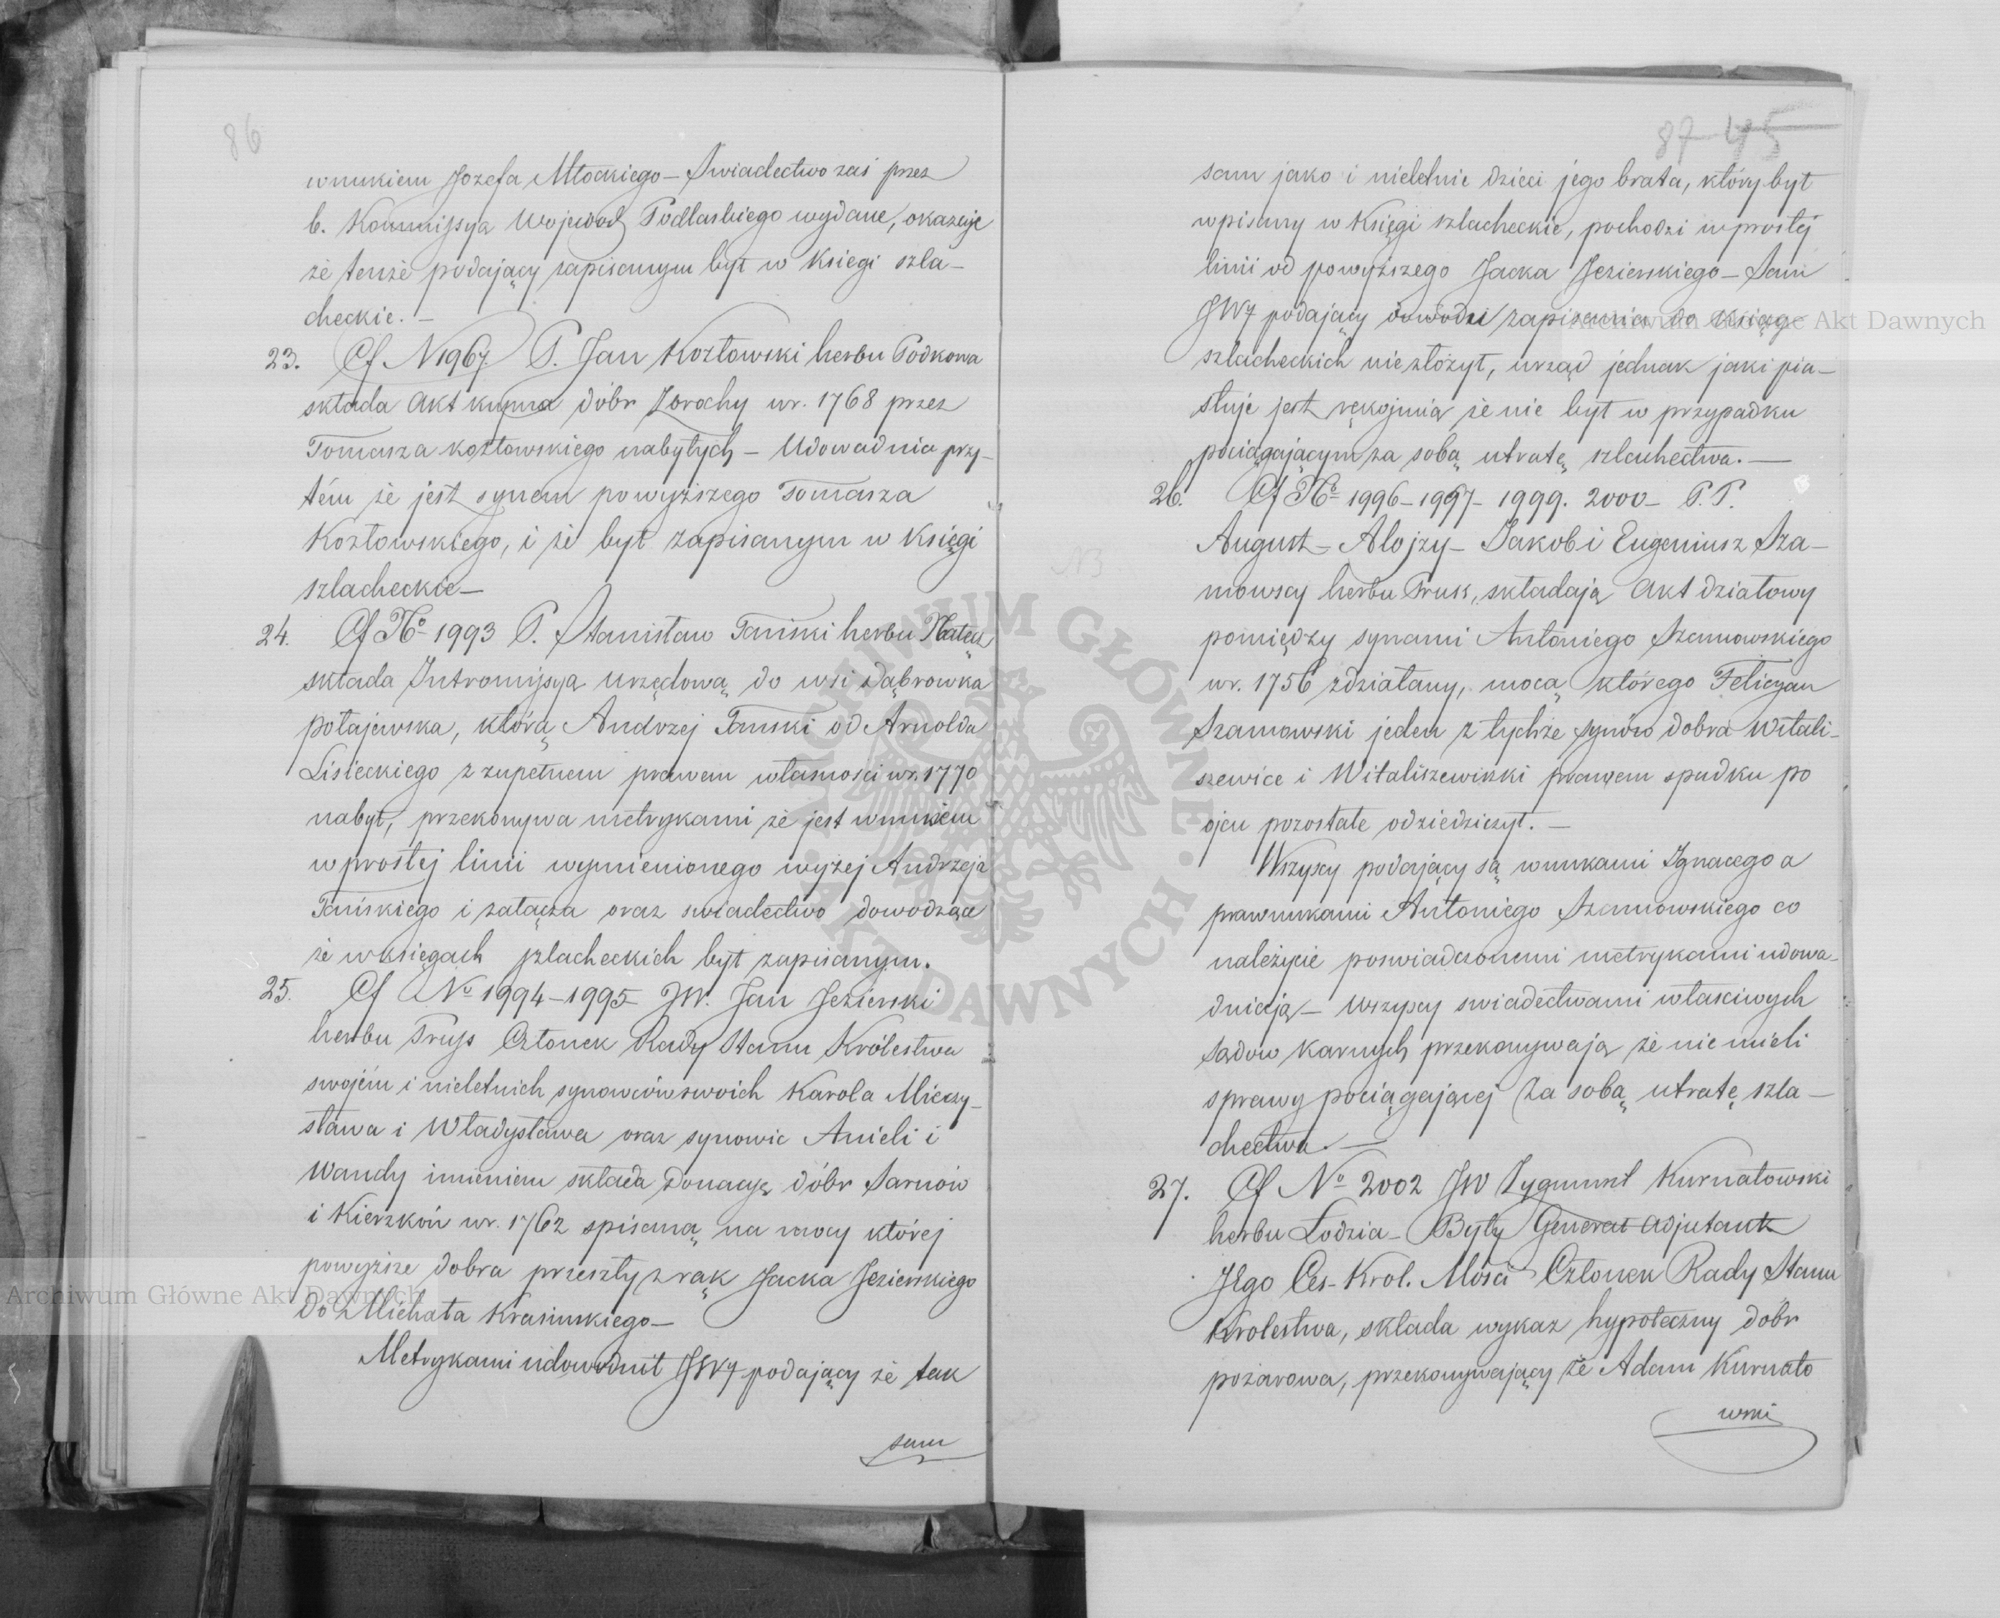 86
wnukiem Jozefa Młockiego – Swiadectwo zaś przez
b. Kommissyą Wojewod Podlaskiego wydane, okazuje
że tenże podający zapisanym był w Księgi szla-
checkie. –
23. Cf N 1967. P. Jan Kozłowski herbu Podkowa
składa Akt kupna dóbr Zorochy w r. 1768 przez
Tomasza Kozłowskiego nabytych – Udowadnia przy-
tém że jest synem powyższego Tomasza
Kozłowskiego, i że był zapisanym w Księgi
szlacheckie –
24. Cf No 1993 P. Stanisław Tański herbu Nałęcz
składa Intromissyą urzędową do wsi Dąbrowka
potajewska, którą Andrzej Tański od Arnolda
Lisieckiego z zupełnem prawem własności w r. 1770
nabył, przekonywa metrykami że jest wnukiem
w prostej linii wymienionego wyżej Andrzeja
Tańskiego i załącza oraz swiadectwo dowodzące
że w księgach szlacheckich był zapisanym.
25. Cf No 1994–1995 JW. Jan Jezierski
herbu Pruss Członek Rady Stanu Królestwa
swojém i nieletnich synowców swoich Karola Mieczy-
sława i Władysława oraz synowic Anieli i
Wandy imieniem składa Donacyą dóbr Sarnów
i Kierzkóń w r. 1762 spisaną na mocy której
powyższe dobra przeszły z rąk Jacka Jezierskiego
do Michała Krasinskiego –
Metrykami udowodnił JWy podający że tak
sam
87 45
sam jako i nieletnie dzieci jego brata, który był
wpisany w Księgi szlacheckie, pochodzi w prostej
linii od powyższego Jacka Jezierskiego – Sam
JWy podający dowodu zapisania do ksiąg
szlacheckich nie złożył, urząd jednak jaki pia-
stuje jest rękojmią że nie był w przypadku
pociągającym za sobą utratę szlachectwa. –
26. Cf No 1996–1997–1999. 2000 – P. P.
August – Alojzy – Jakob i Eugeniusz Sza-
mowscy herbu Prus, składają Akt działowy
pomiędzy synami Antoniego Szamowskiego
w r. 1756 zdziałany, mocą którego Felicyan
Szamowski jeden z tychże synów dobra Witali-
szewice i Witaliszewiczki prawem spadku po
ojcu pozostałe odziedziczył. –
Wszyscy podający są wnukami Ignacego a
prawnukami Antoniego Szamowskiego co
należycie poswiadczonemi metrykami udowa-
dniają – Wszyscy swiadectwami własciwych
Sądow Karnych przekonywają że nie mieli
sprawy pociągającej za sobą utratę szla-
chectwa. –
27. Cf No 2002 JW Zygmunt Kurnatowski
herbu Łodzia – Były Generał Adjutant
JEgo Ces–Krol. Mości Członek Rady Stanu
Krolestwa, składa wykaz hypoteczny dóbr
pożarowa, przekonywający że Adam Kurnato
wski
N3
ARCHIWUM GŁÓWNE AKT DAWNYCH
Archiwum Główne Akt Dawnych
Archiwum Główne Akt Dawnych